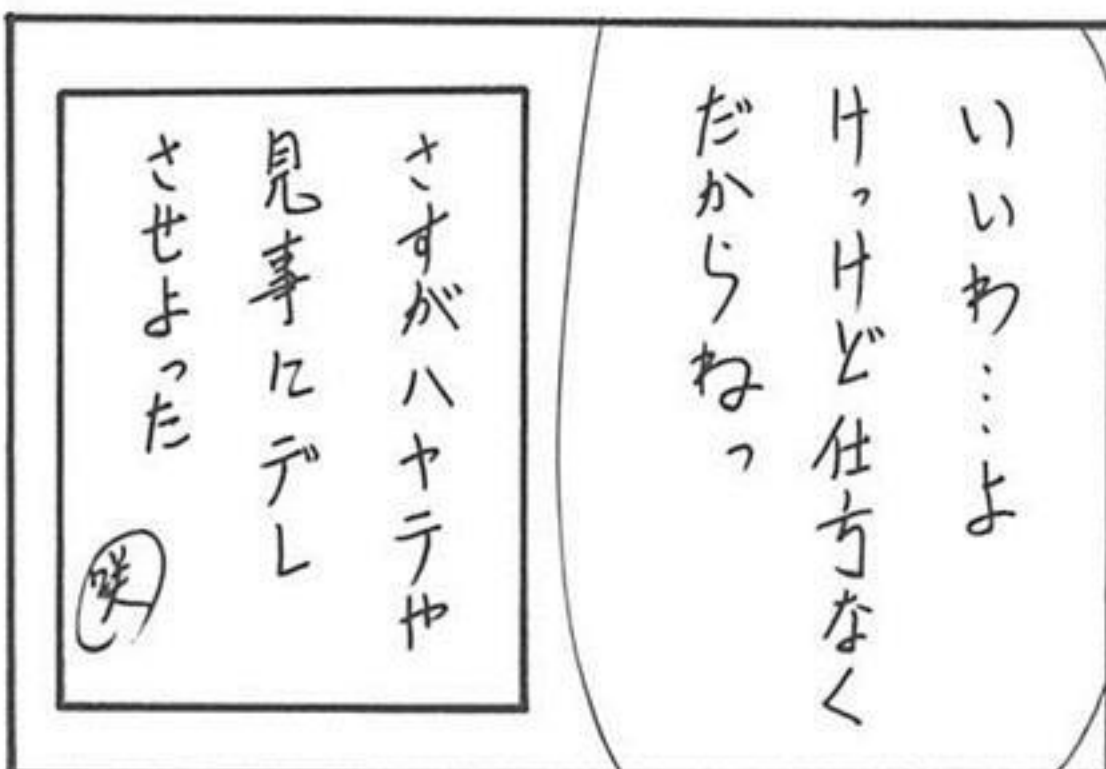 いいわ…よ
けっけど仕方なく
だからねっ
さすがハヤテや
見事にデレ
させよった
咲